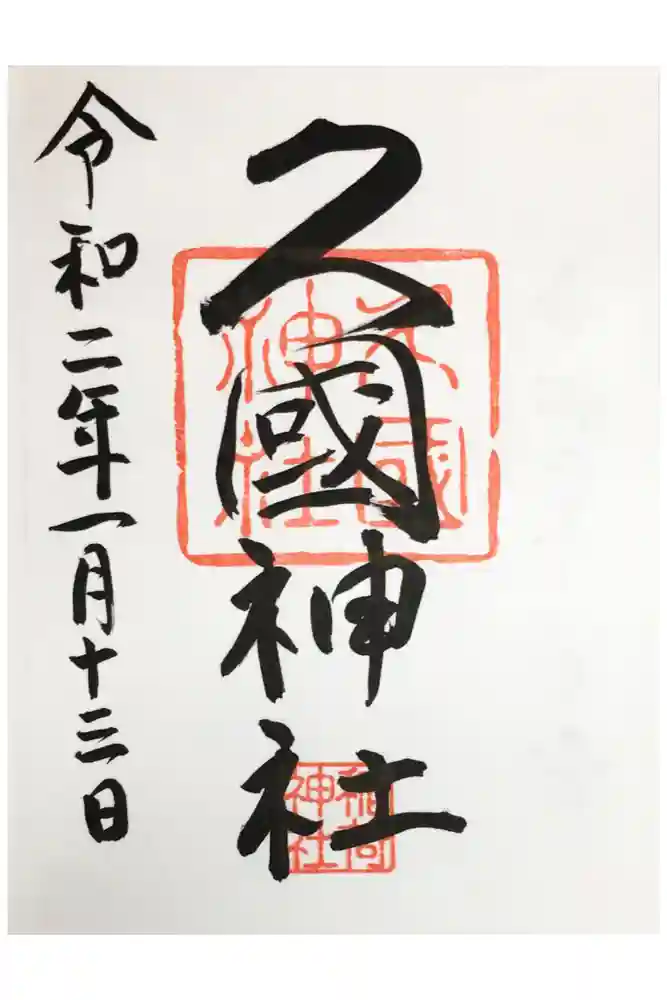 久國神社
令和二年一月十三日
久国神社
稲荷神社